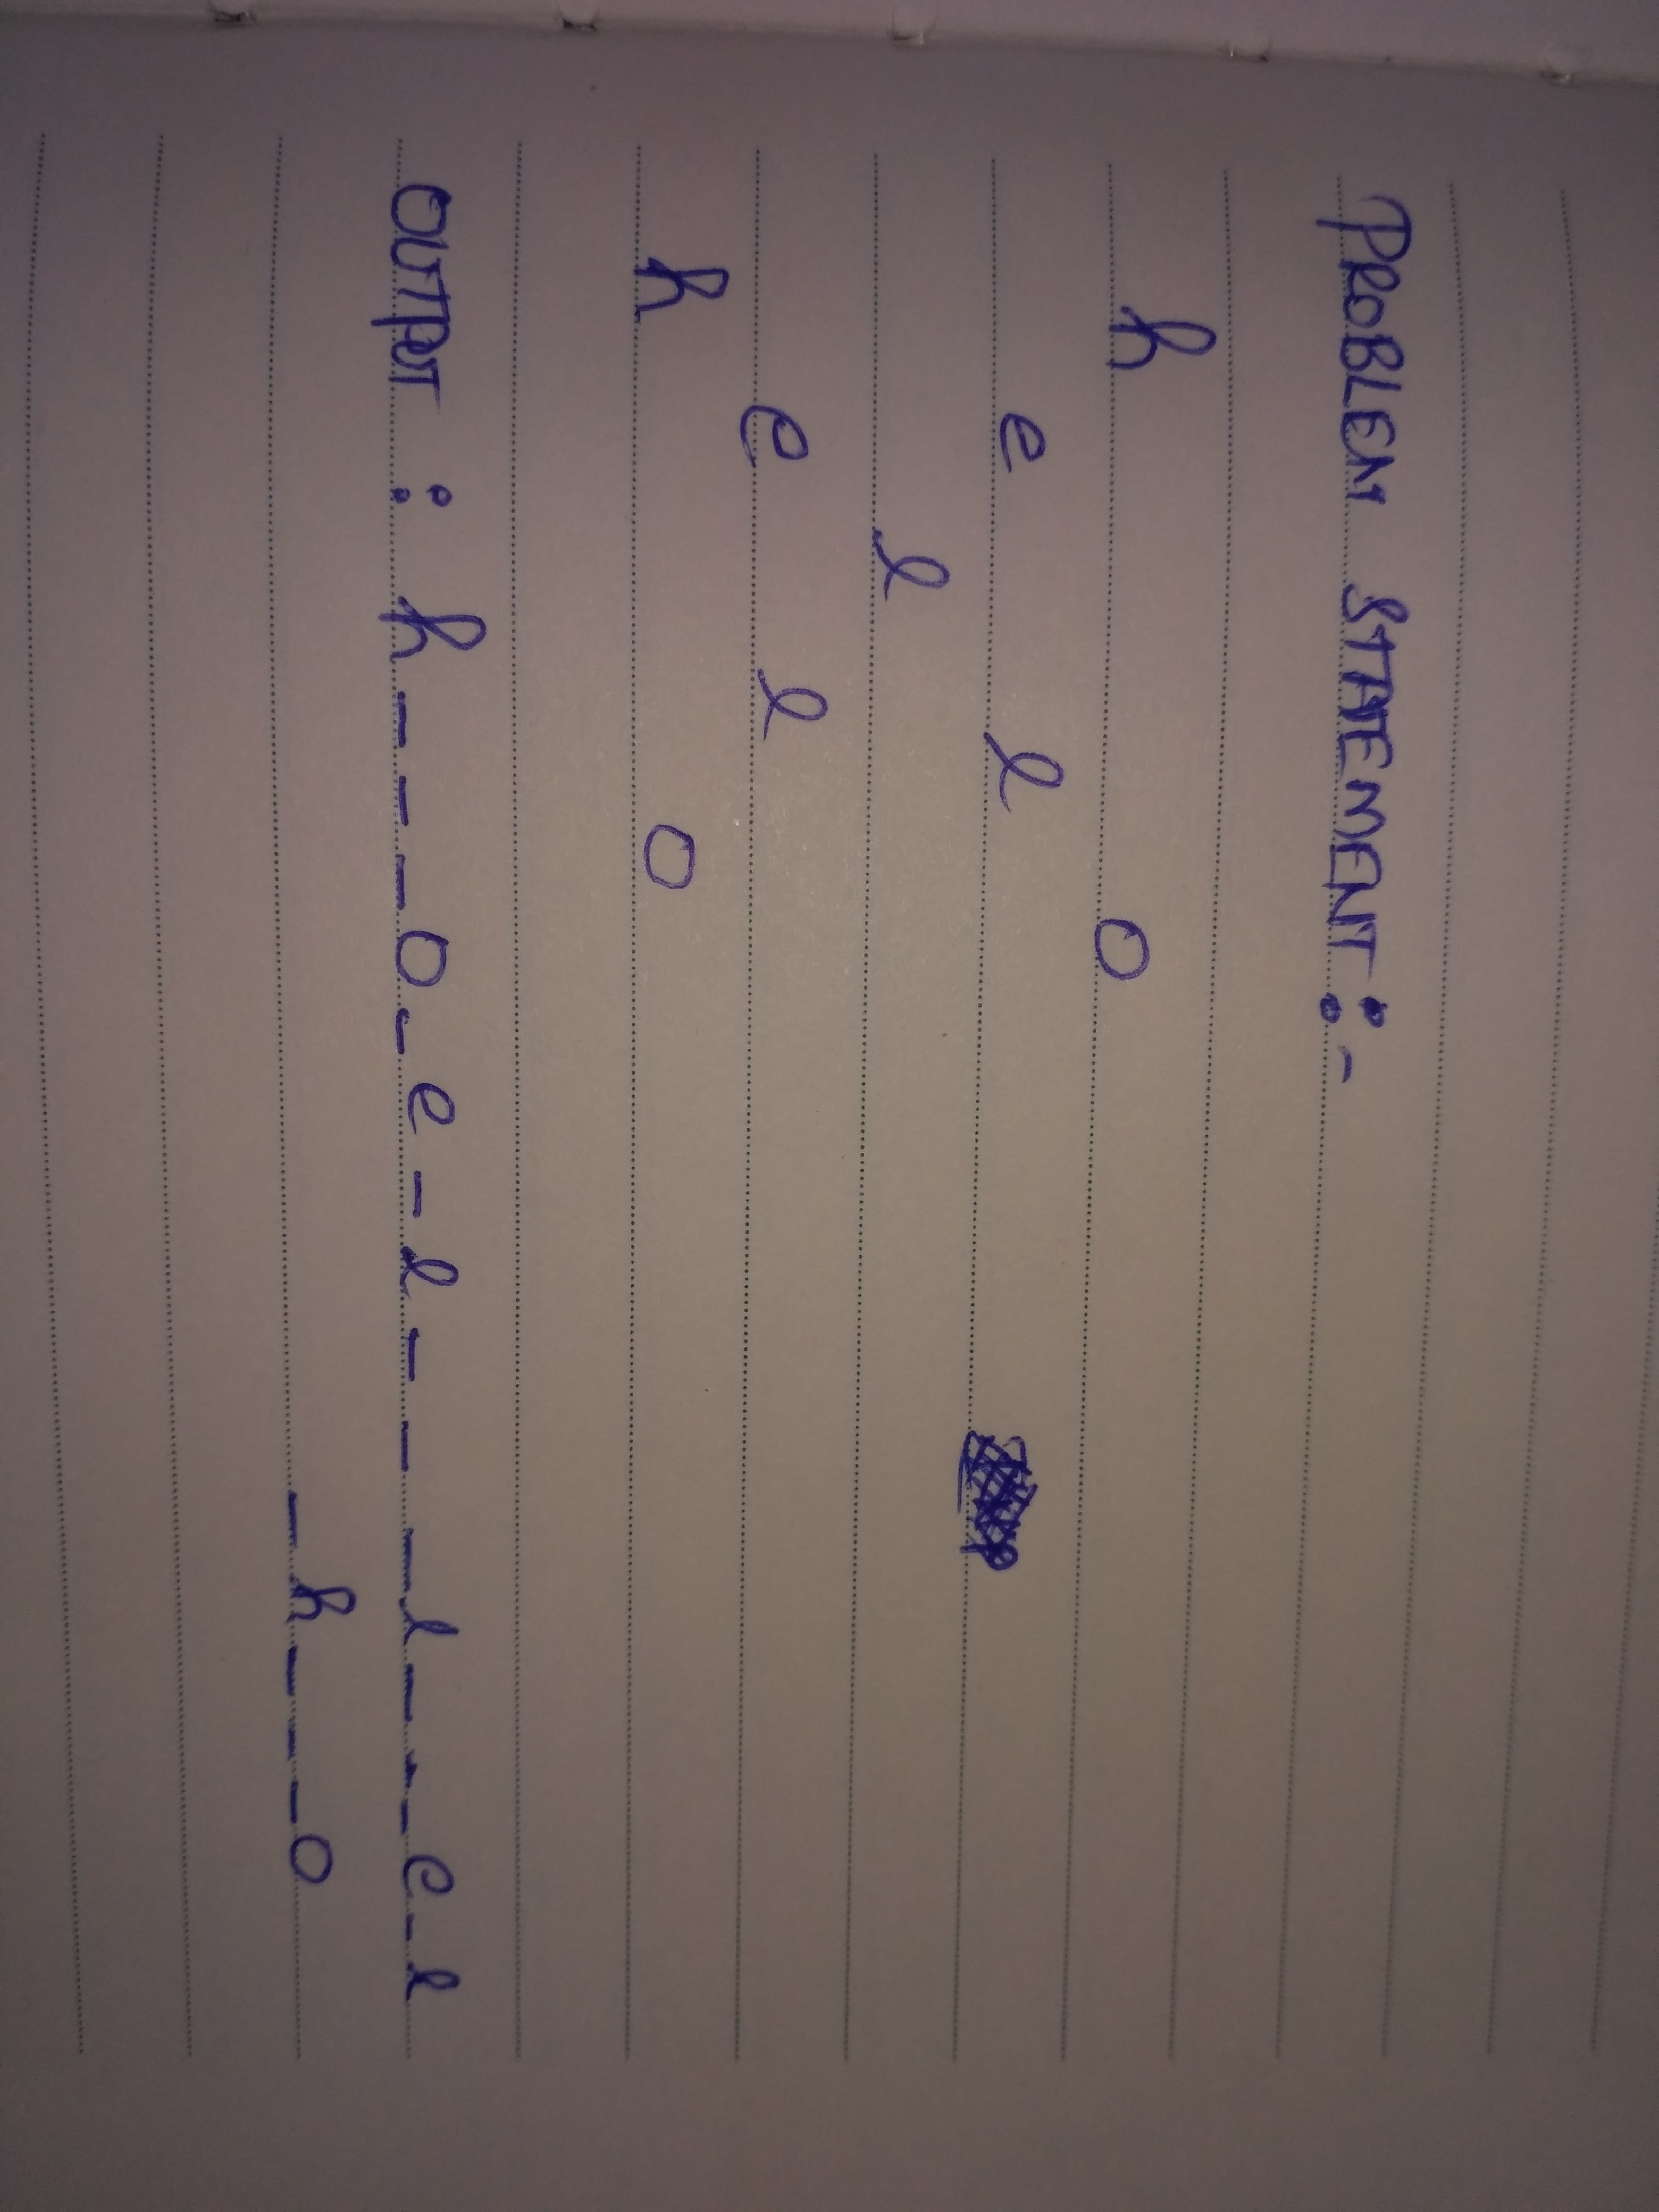 PROBLEM STATEMENT :-
h o
e l
l
e l
h o
OUTPUT : h _ _ _ o _ e _ l _ _ _ l _ _ _ e _ l
_ h _ _ _ o